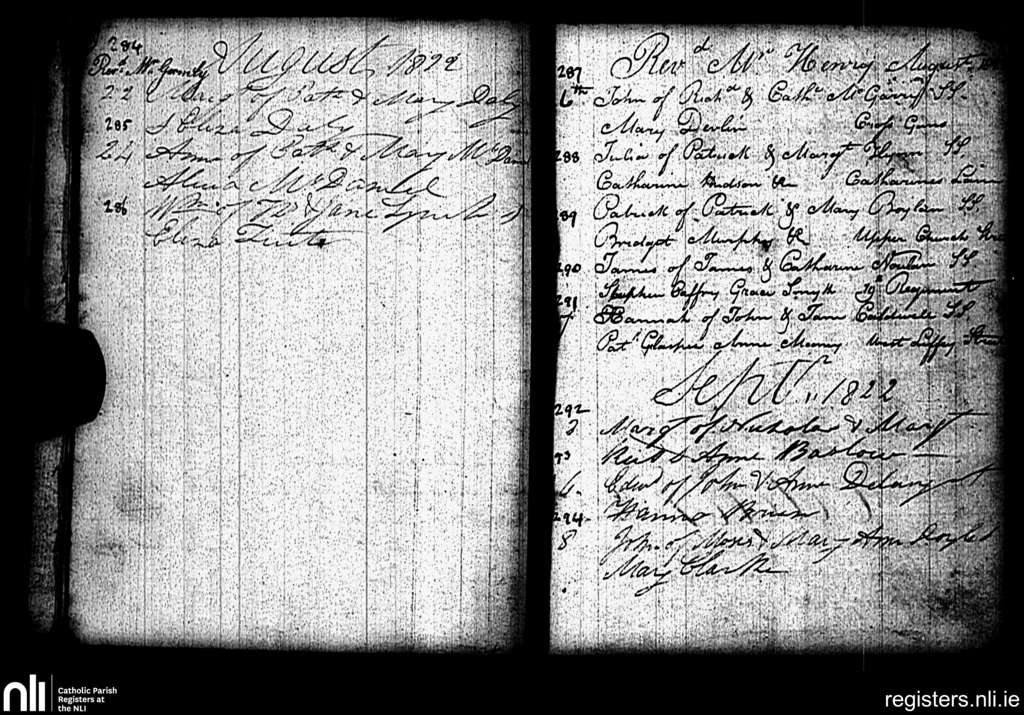 284
Revd. Mr. Gormly August, 1822
22 Margt. of Patk. & Mary Daly
285 S Eliza Daly
24 Anne of Patk. & Mary McDan
Alicia McDaniel
286 Wm. of & Jane Lynch
Eliza
Revd. Mr. Henry August
287
6th John of Richd. & Cathe. McGarry SS.
Mary Devlin Cross Guns
288 Julia of Patrick & Margt. Flynn SS.
Catharine Hudson &c Catharines Lane
289 Patrick of Patrick & Mary Boylan SS.
Bridget Murphy &c Upper Church Stre
290 James of James & Catharine Nowlan SS.
Stephen Caffry Grace Smyth 19th Regiment
291
7 Hannah of John & Jane Caldwell SS.
Patk. Anne Mooney West Liffey Street
Septr., 1822
292
2 Margt. of Nicholas & Margt.
93 & Anne Barlow
6. Edwd. of John & Anne
294. Brien
8 John of Moses & Mary Anne Doyle
Mary Clarke
nli
Catholic Parish
Registers at
the NLI
registers.nli.ie